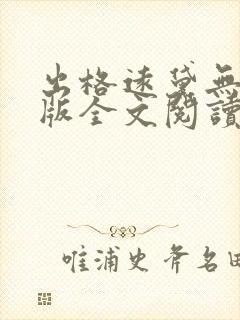 出格远黛無
版全文閱讀
唯浦史斧名田